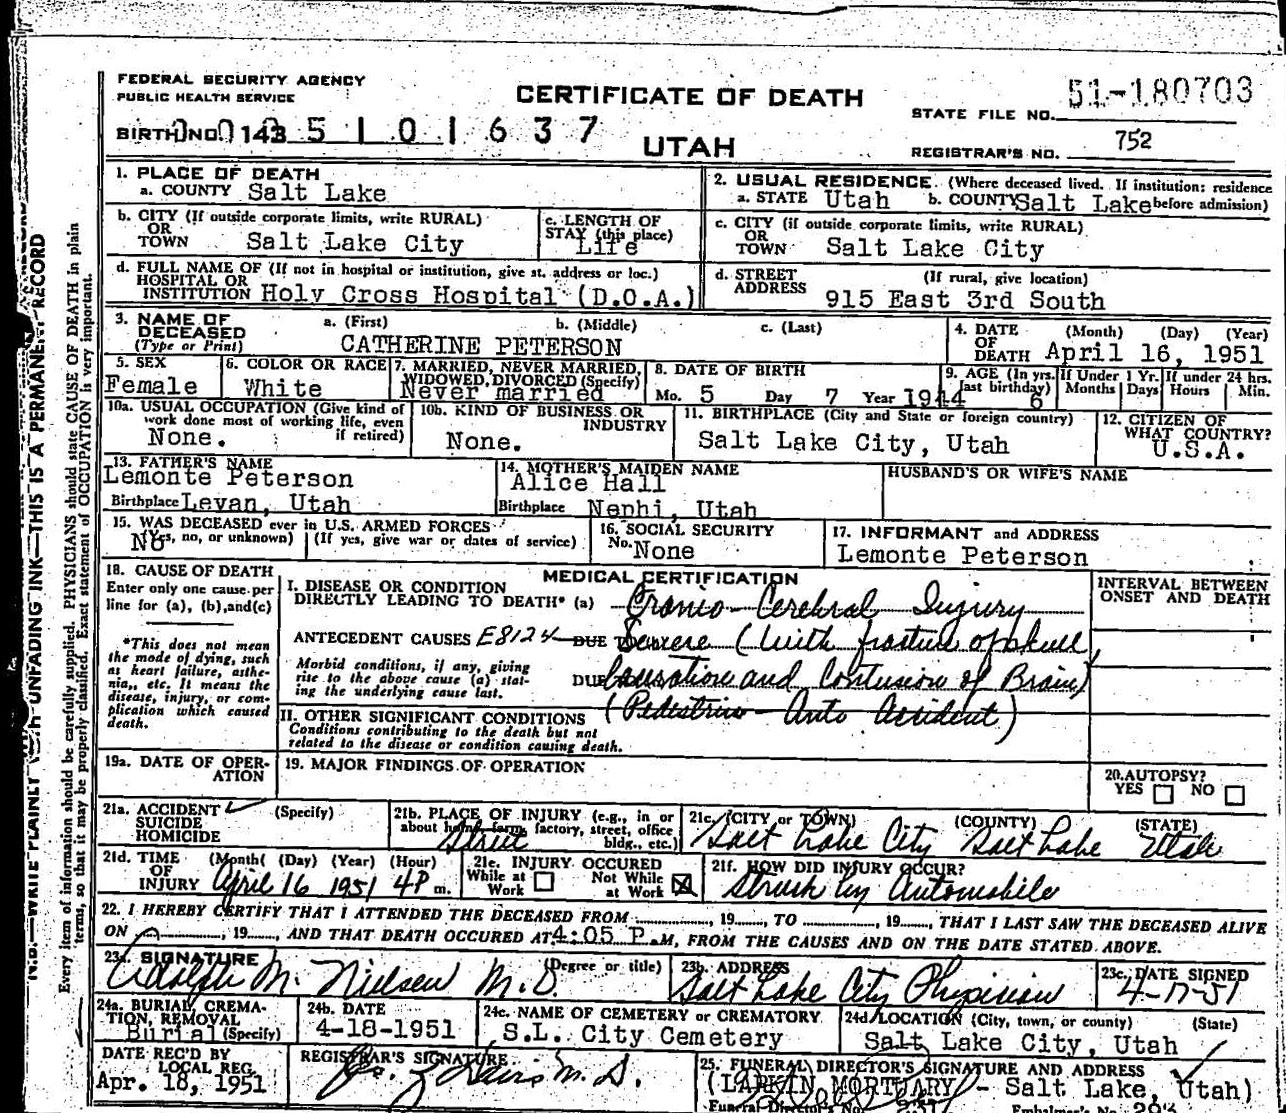 FEDERAL SECURITY AGENCY
PUBLIC HEALTH SERVICE
CERTIFICATE OF DEATH
STATE FILE NO. 51-180703
BIRTH NO. 143 5 1 0 1 6 3 7
UTAH
REGISTRAR'S NO. 752
1. PLACE OF DEATH
a. COUNTY Salt Lake
2. USUAL RESIDENCE (Where deceased lived. If institution: residence before admission)
a. STATE Utah b. COUNTY Salt Lake
b. CITY (If outside corporate limits, write RURAL) OR TOWN Salt Lake City
c. LENGTH OF STAY (this place) Life
c. CITY (if outside corporate limits, write RURAL) OR TOWN Salt Lake City
d. FULL NAME OF (If not in hospital or institution, give st. address or loc.) HOSPITAL OR INSTITUTION Holy Cross Hospital (D.O.A.)
d. STREET ADDRESS (If rural, give location) 915 East 3rd South
3. NAME OF DECEASED (Type or Print) a. (First) b. (Middle) c. (Last)
CATHERINE PETERSON
4. DATE OF DEATH (Month) (Day) (Year) April 16, 1951
5. SEX Female
6. COLOR OR RACE White
7. MARRIED, NEVER MARRIED, WIDOWED, DIVORCED (Specify) Never married
8. DATE OF BIRTH Mo. 5 Day 7 Year 1944
9. AGE (In yrs. last birthday) 6 If Under 1 Yr. Months Days If under 24 hrs. Hours Min.
10a. USUAL OCCUPATION (Give kind of work done most of working life, even if retired) None.
10b. KIND OF BUSINESS OR INDUSTRY None.
11. BIRTHPLACE (City and State or foreign country) Salt Lake City, Utah
12. CITIZEN OF WHAT COUNTRY? U.S.A.
13. FATHER'S NAME Lemonte Peterson
Birthplace Levan, Utah
14. MOTHER'S MAIDEN NAME Alice Hall
Birthplace Nephi, Utah
HUSBAND'S OR WIFE'S NAME
15. WAS DECEASED ever in U.S. ARMED FORCES (Yes, no, or unknown) (If yes, give war or dates of service) No
16. SOCIAL SECURITY No. None
17. INFORMANT and ADDRESS Lemonte Peterson
18. CAUSE OF DEATH
Enter only one cause per line for (a), (b), and (c)
*This does not mean the mode of dying, such as heart failure, asthenia, etc. It means the disease, injury, or complication which caused death.
MEDICAL CERTIFICATION
INTERVAL BETWEEN ONSET AND DEATH
I. DISEASE OR CONDITION DIRECTLY LEADING TO DEATH* (a) Cranio-Cerebral Injury
ANTECEDENT CAUSES E8124 DUE TO Severe (with fracture of skull,
Morbid conditions, if any, giving rise to the above cause (a) stating the underlying cause last.
DUE and Contusion of Brain)
(Pedestrian-Auto Accident)
II. OTHER SIGNIFICANT CONDITIONS
Conditions contributing to the death but not related to the disease or condition causing death.
19a. DATE OF OPERATION
19. MAJOR FINDINGS OF OPERATION
20. AUTOPSY? YES NO
21a. ACCIDENT ✓ (Specify) SUICIDE HOMICIDE
21b. PLACE OF INJURY (e.g., in or about home, farm, factory, street, office bldg., etc.) Street
21c. (CITY or TOWN) (COUNTY) (STATE) Salt Lake City Salt Lake Utah
21d. TIME OF INJURY (Month) (Day) (Year) (Hour) April 16 1951 4P m.
21e. INJURY OCCURED While at Work Not While at Work X
21f. HOW DID INJURY OCCUR? Struck by Automobile
22. I HEREBY CERTIFY THAT I ATTENDED THE DECEASED FROM , 19 , TO , 19 , THAT I LAST SAW THE DECEASED ALIVE
ON , 19 , AND THAT DEATH OCCURED AT 4:05 P.M, FROM THE CAUSES AND ON THE DATE STATED ABOVE.
23a. SIGNATURE (Degree or title) Adolph M. Nielsen M.D.
23b. ADDRESS Salt Lake City Physician
23c. DATE SIGNED 4-17-51
24a. BURIAL, CREMATION, REMOVAL (Specify) Burial
24b. DATE 4-18-1951
24c. NAME OF CEMETERY or CREMATORY S.L. City Cemetery
24d. LOCATION (City, town, or county) (State) Salt Lake City, Utah
DATE REC'D BY LOCAL REG. Apr. 18, 1951
REGISTRAR'S SIGNATURE M.D.
25. FUNERAL DIRECTOR'S SIGNATURE AND ADDRESS
(LARKIN MORTUARY - Salt Lake, Utah)
N.B.—WRITE PLAINLY WITH UNFADING INK—THIS IS A PERMANENT RECORD
Every item of information should be carefully supplied. PHYSICIANS should state CAUSE OF DEATH in plain
terms, so that it may be properly classified. Exact statement of OCCUPATION is very important.